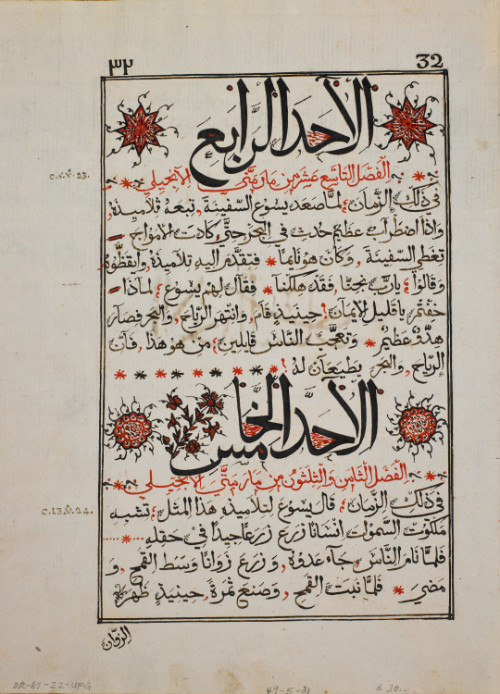 ٣٢ 32
الأحد الرابع
الفصل التاسع عشر من مار متي الإنجيلي
c.٨.٧.23.
في ذلك الزمان لما صعد يسوع السفينة، تبعه تلاميذه،
وإذا اضطراب عظيم حدث في البحر حتي كادت الأمواج
تغطي السفينة، وكان هو نايما * فتقدم إليه تلاميذه، وايقظوه
وقالوا يارب نجنا، فقد هلكنا * فقال لهم يسوع لماذا
خفتم ياقليل الإيمان! حينيذ قام، وانتهر الرياح، والبحر فصار
هدو عظيم * وتعجب الناس قايلين من هو هذا، فان
الرياح، والبحر يطيعان له!
الأحد الخامس
الفصل الثامن والثلثون من مار متي الإنجيلي
c.13.٧.24.
في ذلك الزمان قال يسوع لتلاميذه هذا المثل تشبه
ملكوت السموات انسانا زرع زرعا جيدا في حقله
فلما نام الناس، جآء عدوه، وزرع زوانا وسط القمح، و
مضي * فلما نبت القمح، وصنع ثمرة، حينيذ ظهر
الزوان
DR-67-22-UFG
49-5-31